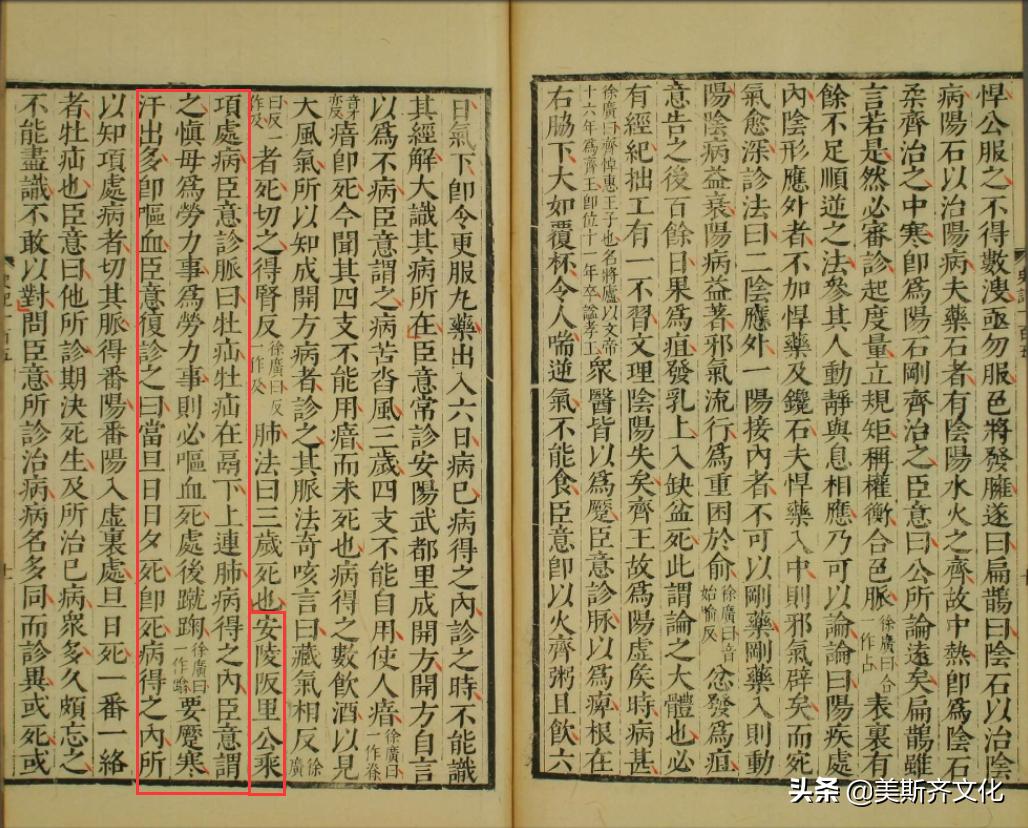 悍公服之不得數溲亟勿服色將發臃遂曰扁鵲曰陰石以治陰
病陽石以治陽病夫藥石者有陰陽水火之齊故中熱卽爲陰石
柔齊治之中寒卽爲陽石剛齊治之臣意曰公所論遠矣扁鵲雖
言若是然必審診起度量立規矩稱權衡合色脈徐廣曰合一作占表裏有
餘不足順逆之法參其人動靜與息相應乃可以論論曰陽疾處
內陰形應外者不加悍藥及鑱石夫悍藥入中則邪氣辟矣而死
氣愈深診法曰二陰應外一陽接內者不可以剛藥剛藥入則動
陽陰病益衰陽病益著邪氣流行爲重困於俞徐廣曰音始喻反忿發爲疽
意告之後百餘日果爲疽發乳上入缺盆死此謂論之大體也必
有經紀拙工有一不習文理陰陽失矣齊王故爲陽虛矦時病甚
徐廣曰齊悼惠王子也名將廬以文帝十六年爲齊王卽位十一年卒謚孝王衆醫皆以爲蹷臣意診脈以爲痺根在
右脇下大如覆杯令人喘逆氣不能食臣意卽以火齊粥且飲六
日氣下卽令更服丸藥出入六日病已病得之內診之時不能識
其經解大識其病所在臣意常診安陽武都里成開方開方自言
以爲不病臣意謂之病苦沓風三歲四支不能自用使人瘖徐廣曰一作
瘖卽死今聞其四支不能用瘖而未死也病得之數飲酒以見
大風氣所以知成開方病者診之其脈法奇咳言曰藏氣相反徐廣
曰反一作及者死切之得腎反徐廣曰反一作及肺法曰三歲死也安陵阪里公乘
項處病臣意診脈曰牡疝牡疝在鬲下上連肺病得之內臣意謂
之愼毋爲勞力事爲勞力事則必嘔血死處後蹴踘徐廣曰一作要蹷寒
汗出多卽嘔血臣意復診之曰當旦日日夕死卽死病得之內所
以知項處病者切其脈得番陽番陽入虛裏處旦日死一番一絡
者牡疝也臣意曰他所診期決死生及所治已病衆多久頗忘之
不能盡識不敢以對問臣意所診治病病名多同而診異或死或
头条 @美斯齐文化